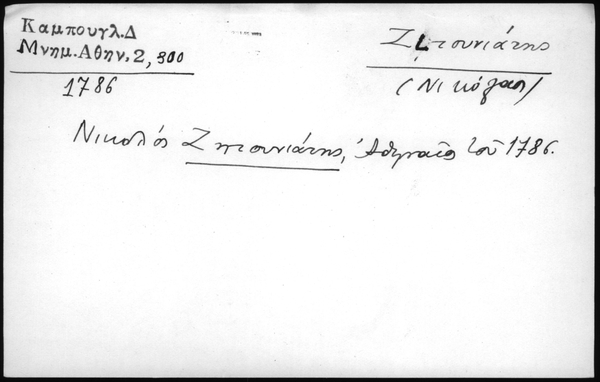 Καμπουγλ.Δ
Μνημ.Αθην. 2, 300
1786
Ζητουνιάτης
(Νικόλαος)
Νικολός Ζητουνιάτης, Αθηναίος τού 1786.